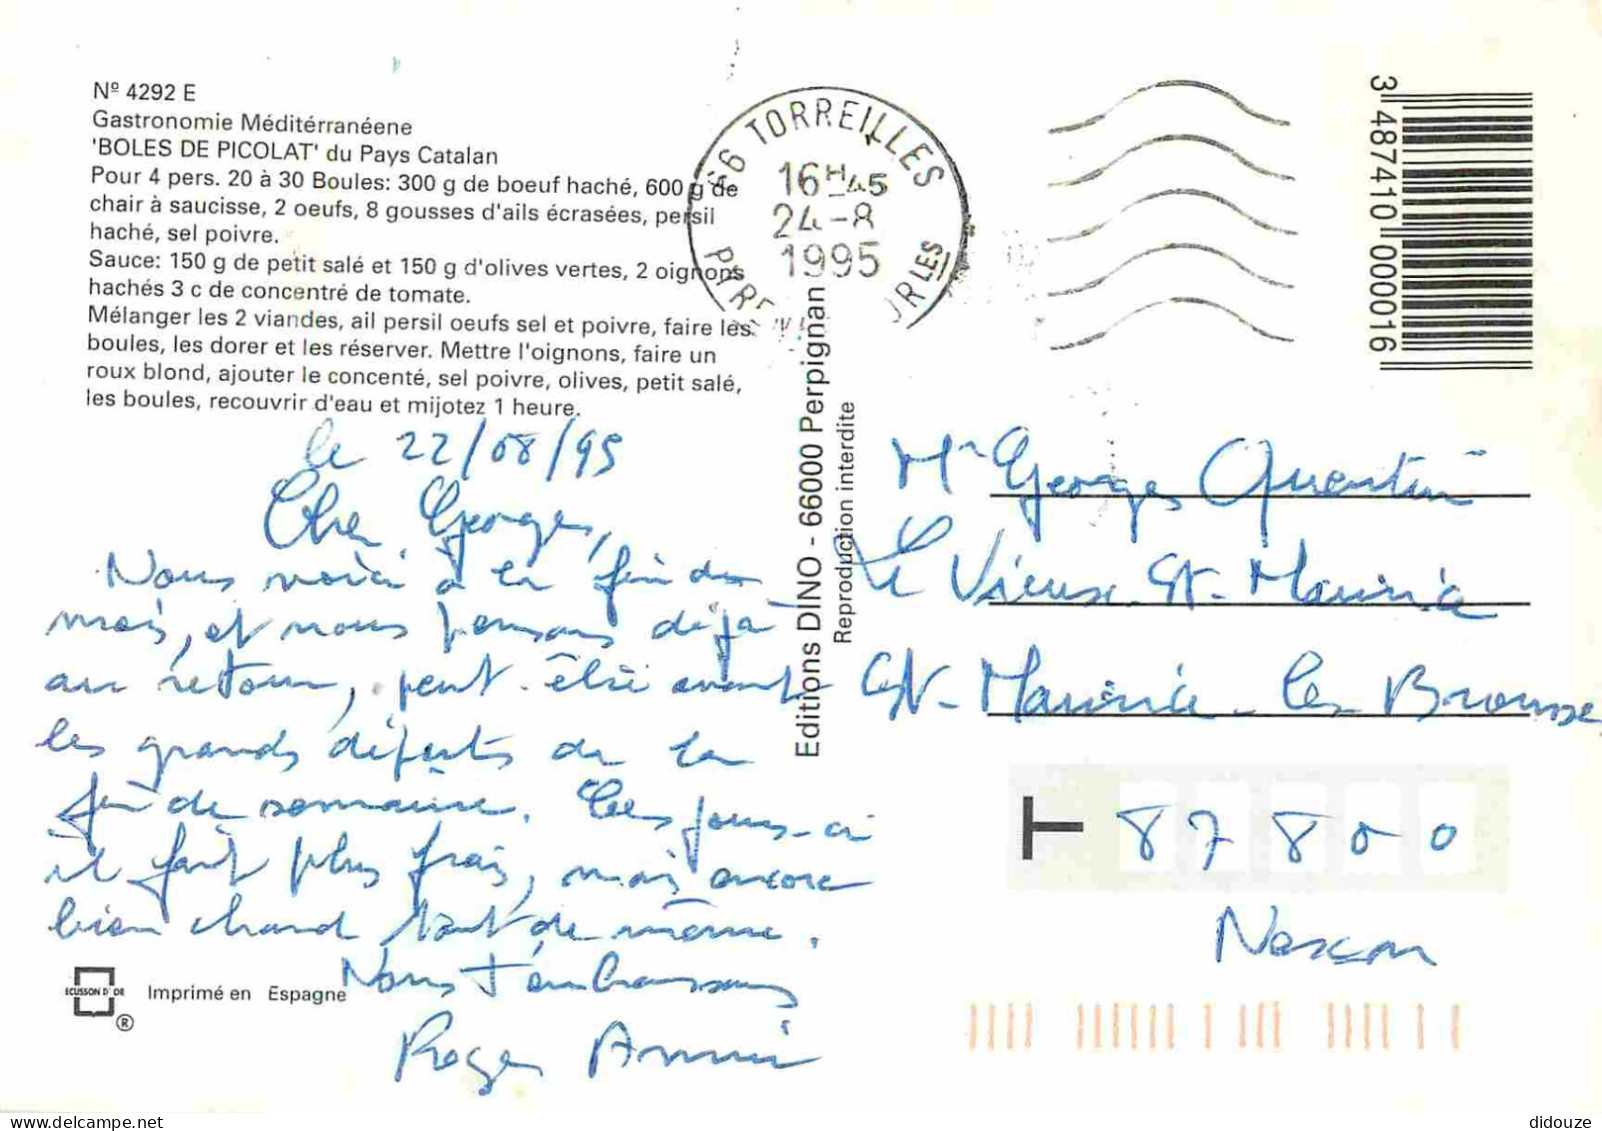 Nº 4292 E
Gastronomie Méditérranéene
'BOLES DE PICOLAT' du Pays Catalan
Pour 4 pers. 20 à 30 Boules: 300 g de boeuf haché, 600 g de
chair à saucisse, 2 oeufs, 8 gousses d'ails écrasées, persil
haché, sel poivre.
Sauce: 150 g de petit salé et 150 g d'olives vertes, 2 oignons
hachés 3 c de concentré de tomate.
Mélanger les 2 viandes, ail persil oeufs sel et poivre, faire les
boules, les dorer et les réserver. Mettre l'oignons, faire un
roux blond, ajouter le concenté, sel poivre, olives, petit salé,
les boules, recouvrir d'eau et mijotez 1 heure.
66 TORREILLES
16H45
24-8
1995
3 487410 000016
le 22/08/95
Cher Georges,
Nous voici à la fin du
mois, et nous pensons déjà
au retour, peut-être avant
les grands départs de la
fin de semaine. Ces jours-ci
il fait plus frais, mais encore
bien chaud tout de même.
Nous t'embrassons
Roger Annie
Editions DINO - 66000 Perpignan
Reproduction interdite
Mr Georges Quentin
Le Vieux St-Maurice
St-Maurice-les-Brousses
T 87800
Nexon
ECUSSON D'OR
®
Imprimé en Espagne
didouze